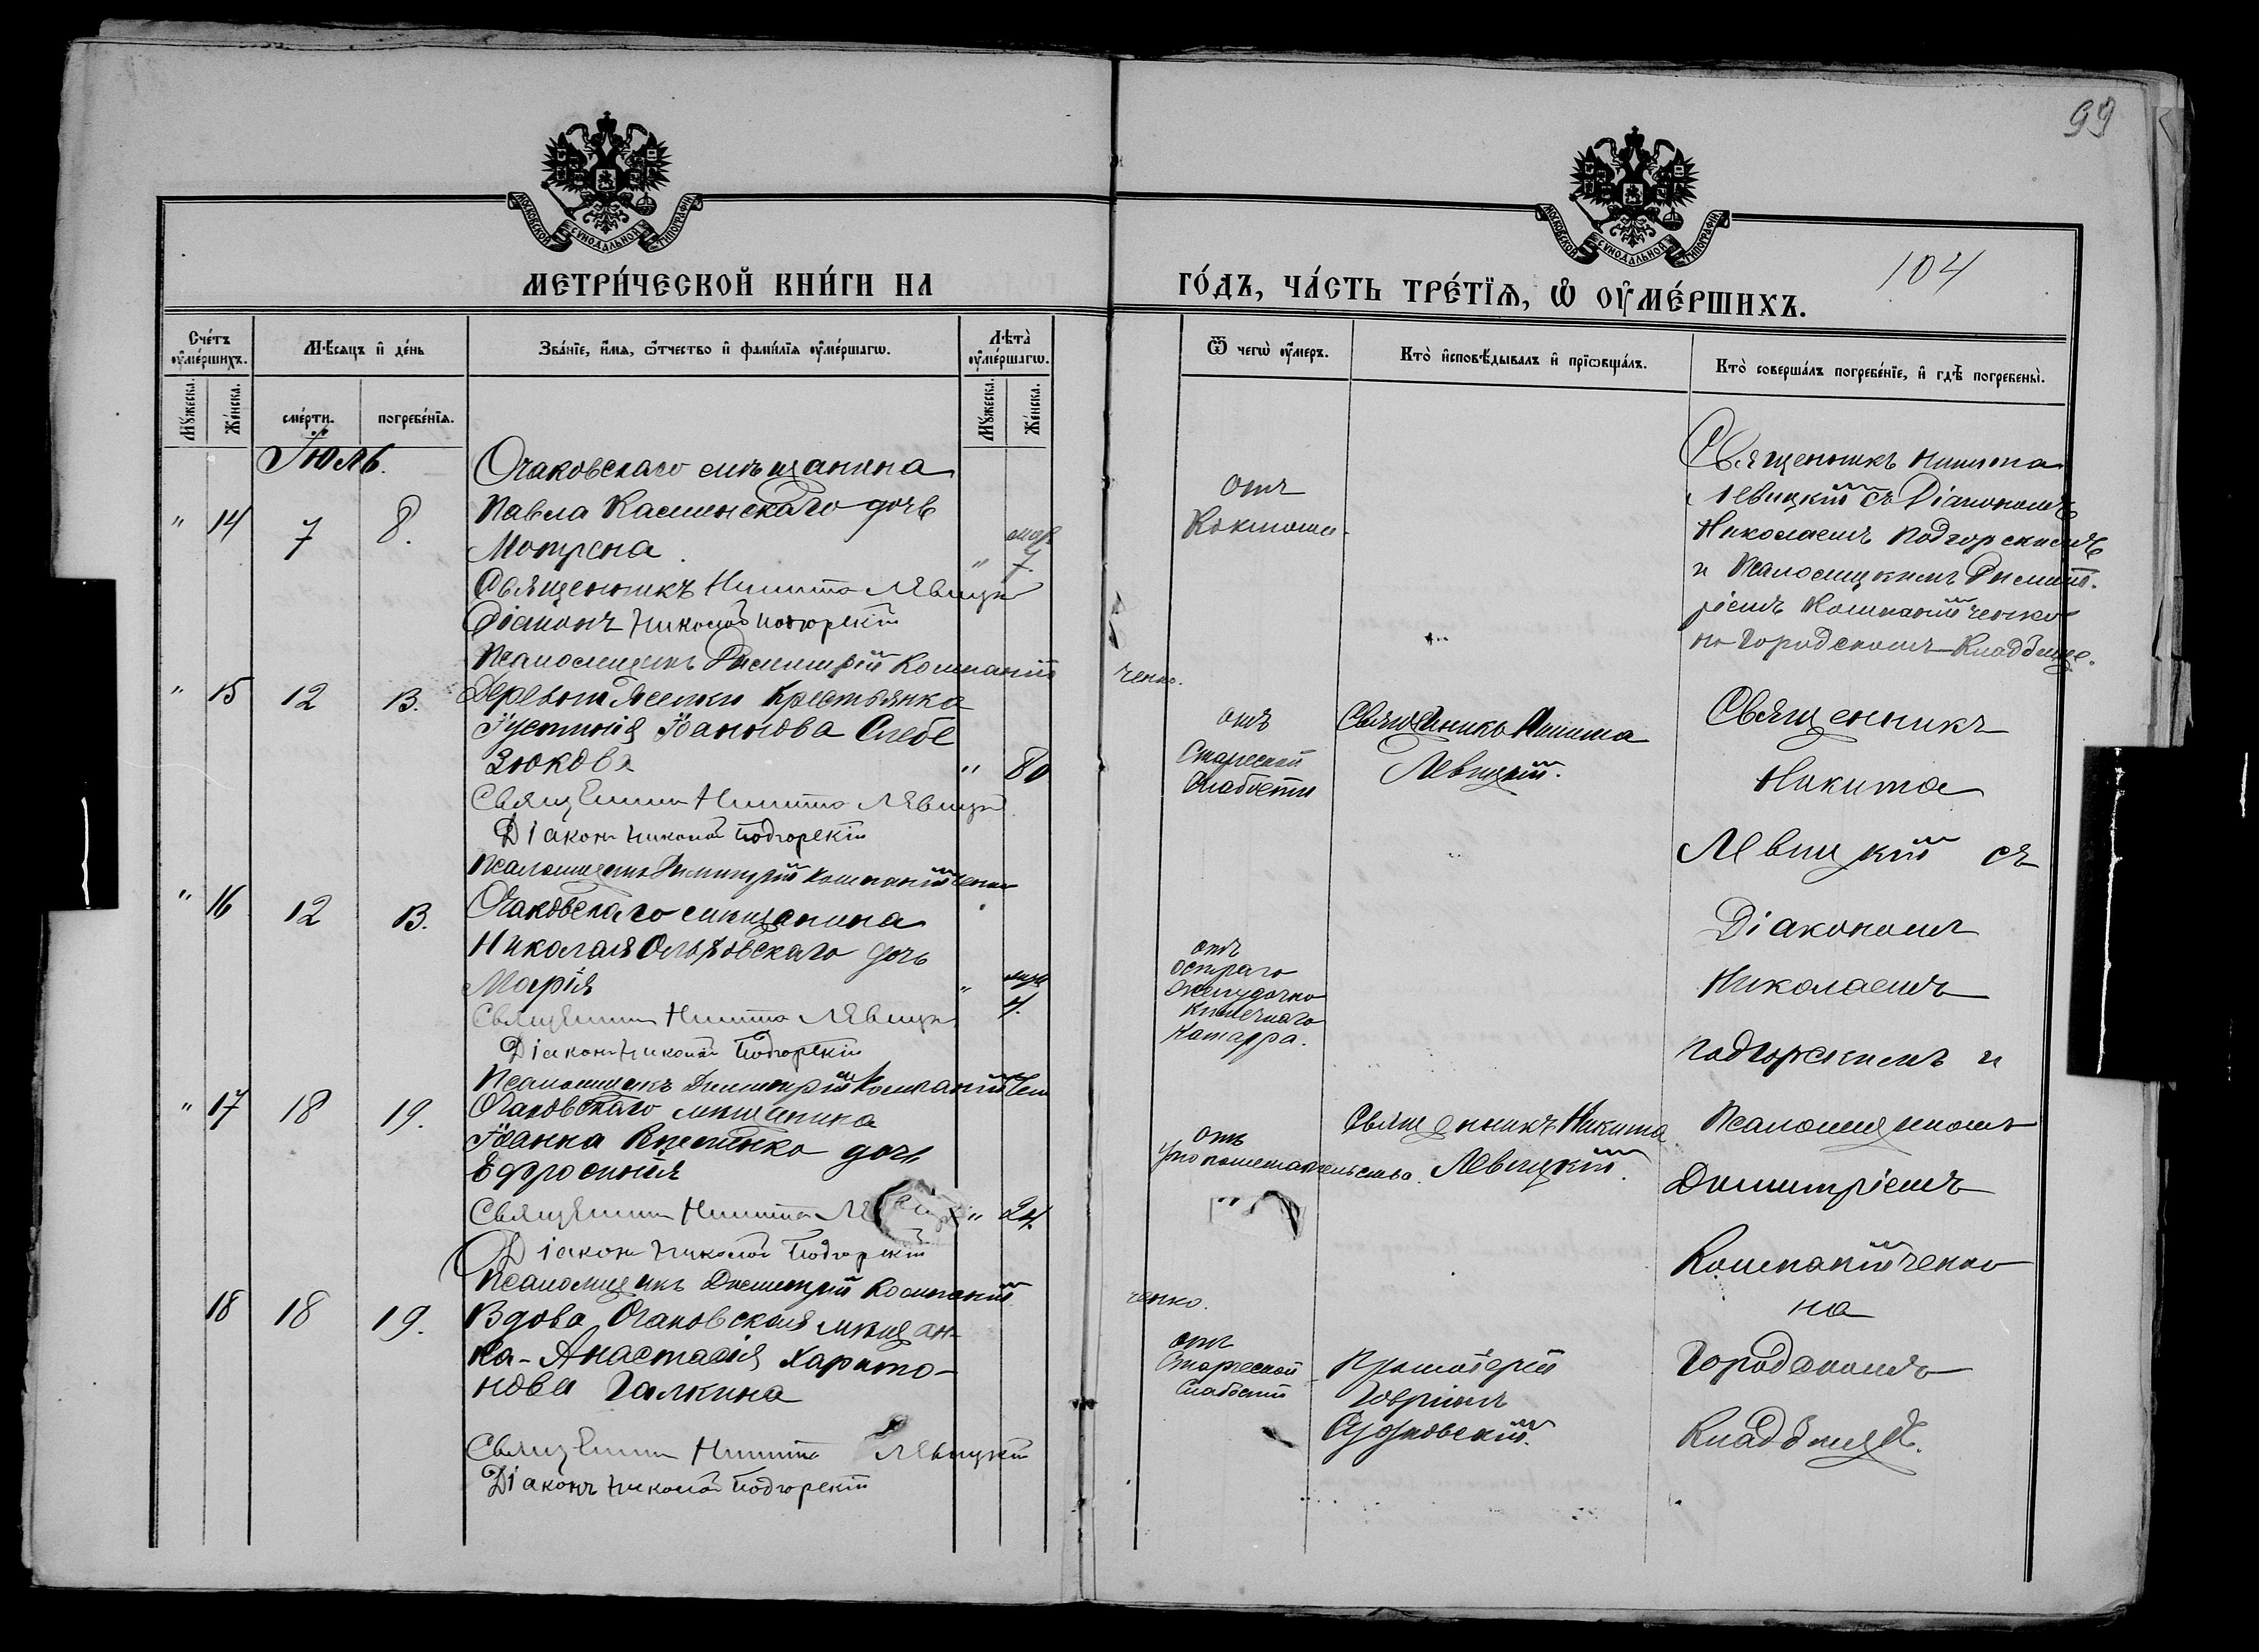 99
МОСКОВСКОЙ СѴНОДАЛЬНОЙ ТИПОГРАФІИ
МОСКОВСКОЙ СѴНОДАЛЬНОЙ ТИПОГРАФІИ
МЕТРИ́ЧЕСКОЙ КНИ́ГИ НА
ГО́ДЪ, ЧА́СТЬ ТРЕ́ТЇѦ, Ѡ ОУМЕ́РШИХЪ.
104
Сче́тъ оуме́ршихъ.
Мѣсяцъ и де́нь
Зва́нїе, и́мя, ѻтчество и фами́лїя оуме́ршагѡ.
Лѣта̀ оуме́ршагѡ.
Ѿ чегѡ̀ оумеръ.
Кто̀ исповѣ́дывалъ и прїѡбща́лъ.
Кто̀ соверша́лъ погребе́нїе, и гдѣ̀ погребены̀.
Мꙋ́жеска.
Же́нска.
сме́рти.
погребе́нїя.
Мꙋ́жеска.
Же́нска.
Іюль.
" 14
7
8.
Очаковскаго мѣщанина
Павла дочь
Мотрена.
" 7.
Священникъ Никита Левицкій
Діаконъ Николай Подгорскій
Псаломщикъ Димитрій Компанійченко.
отъ
Священникъ Никита
Левицкій съ Діакономъ
Николаемъ Подгорскимъ
и Псаломщикомъ Димитріемъ
Компанійченко
на Городскомъ Кладбище.
" 15
12
13.
Деревни крестьянка
Іустинія Іоаннова
" 80
Священникъ Никита Левицкій
Діаконъ Николай Подгорскій
Псаломщикъ Димитрій Компанійченко
отъ
Старческой
Слабости
Священникъ Никита
Левицкій.
Священникъ
Никита
Левицкій съ
Діакономъ
Николаемъ
Подгорскимъ и
Псаломщикомъ
Димитріемъ
Компанійченко
на
Городскомъ
Кладбищѣ.
" 16
12
13.
Очаковскаго мѣщанина
Николая Ольховскаго дочь
Марія
"
4.
Священникъ Никита Левицкій
Діаконъ Николай Подгорскій
Псаломщикъ Димитрій Компанійчен
отъ
остраго
желудочно
кишечнаго
катарра.
" 17
18
19.
Очаковскаго мѣщанина
Іоанна дочь
Ефросинія
" 24.
Священникъ Никита Левицкій
Діаконъ Николай Подгорскій
Псаломщикъ Димитрій Компанійченко.
отъ
умопомешательства.
Священникъ Никита
Левицкій.
18
18
19.
Вдова Очаковская мѣщан-
ка - Анастасія Харито-
нова Галкина
Священникъ Никита Левицкій
Діаконъ Николай Подгорскій
отъ
Старческой
Слабости
Протоіерей
Гавріилъ